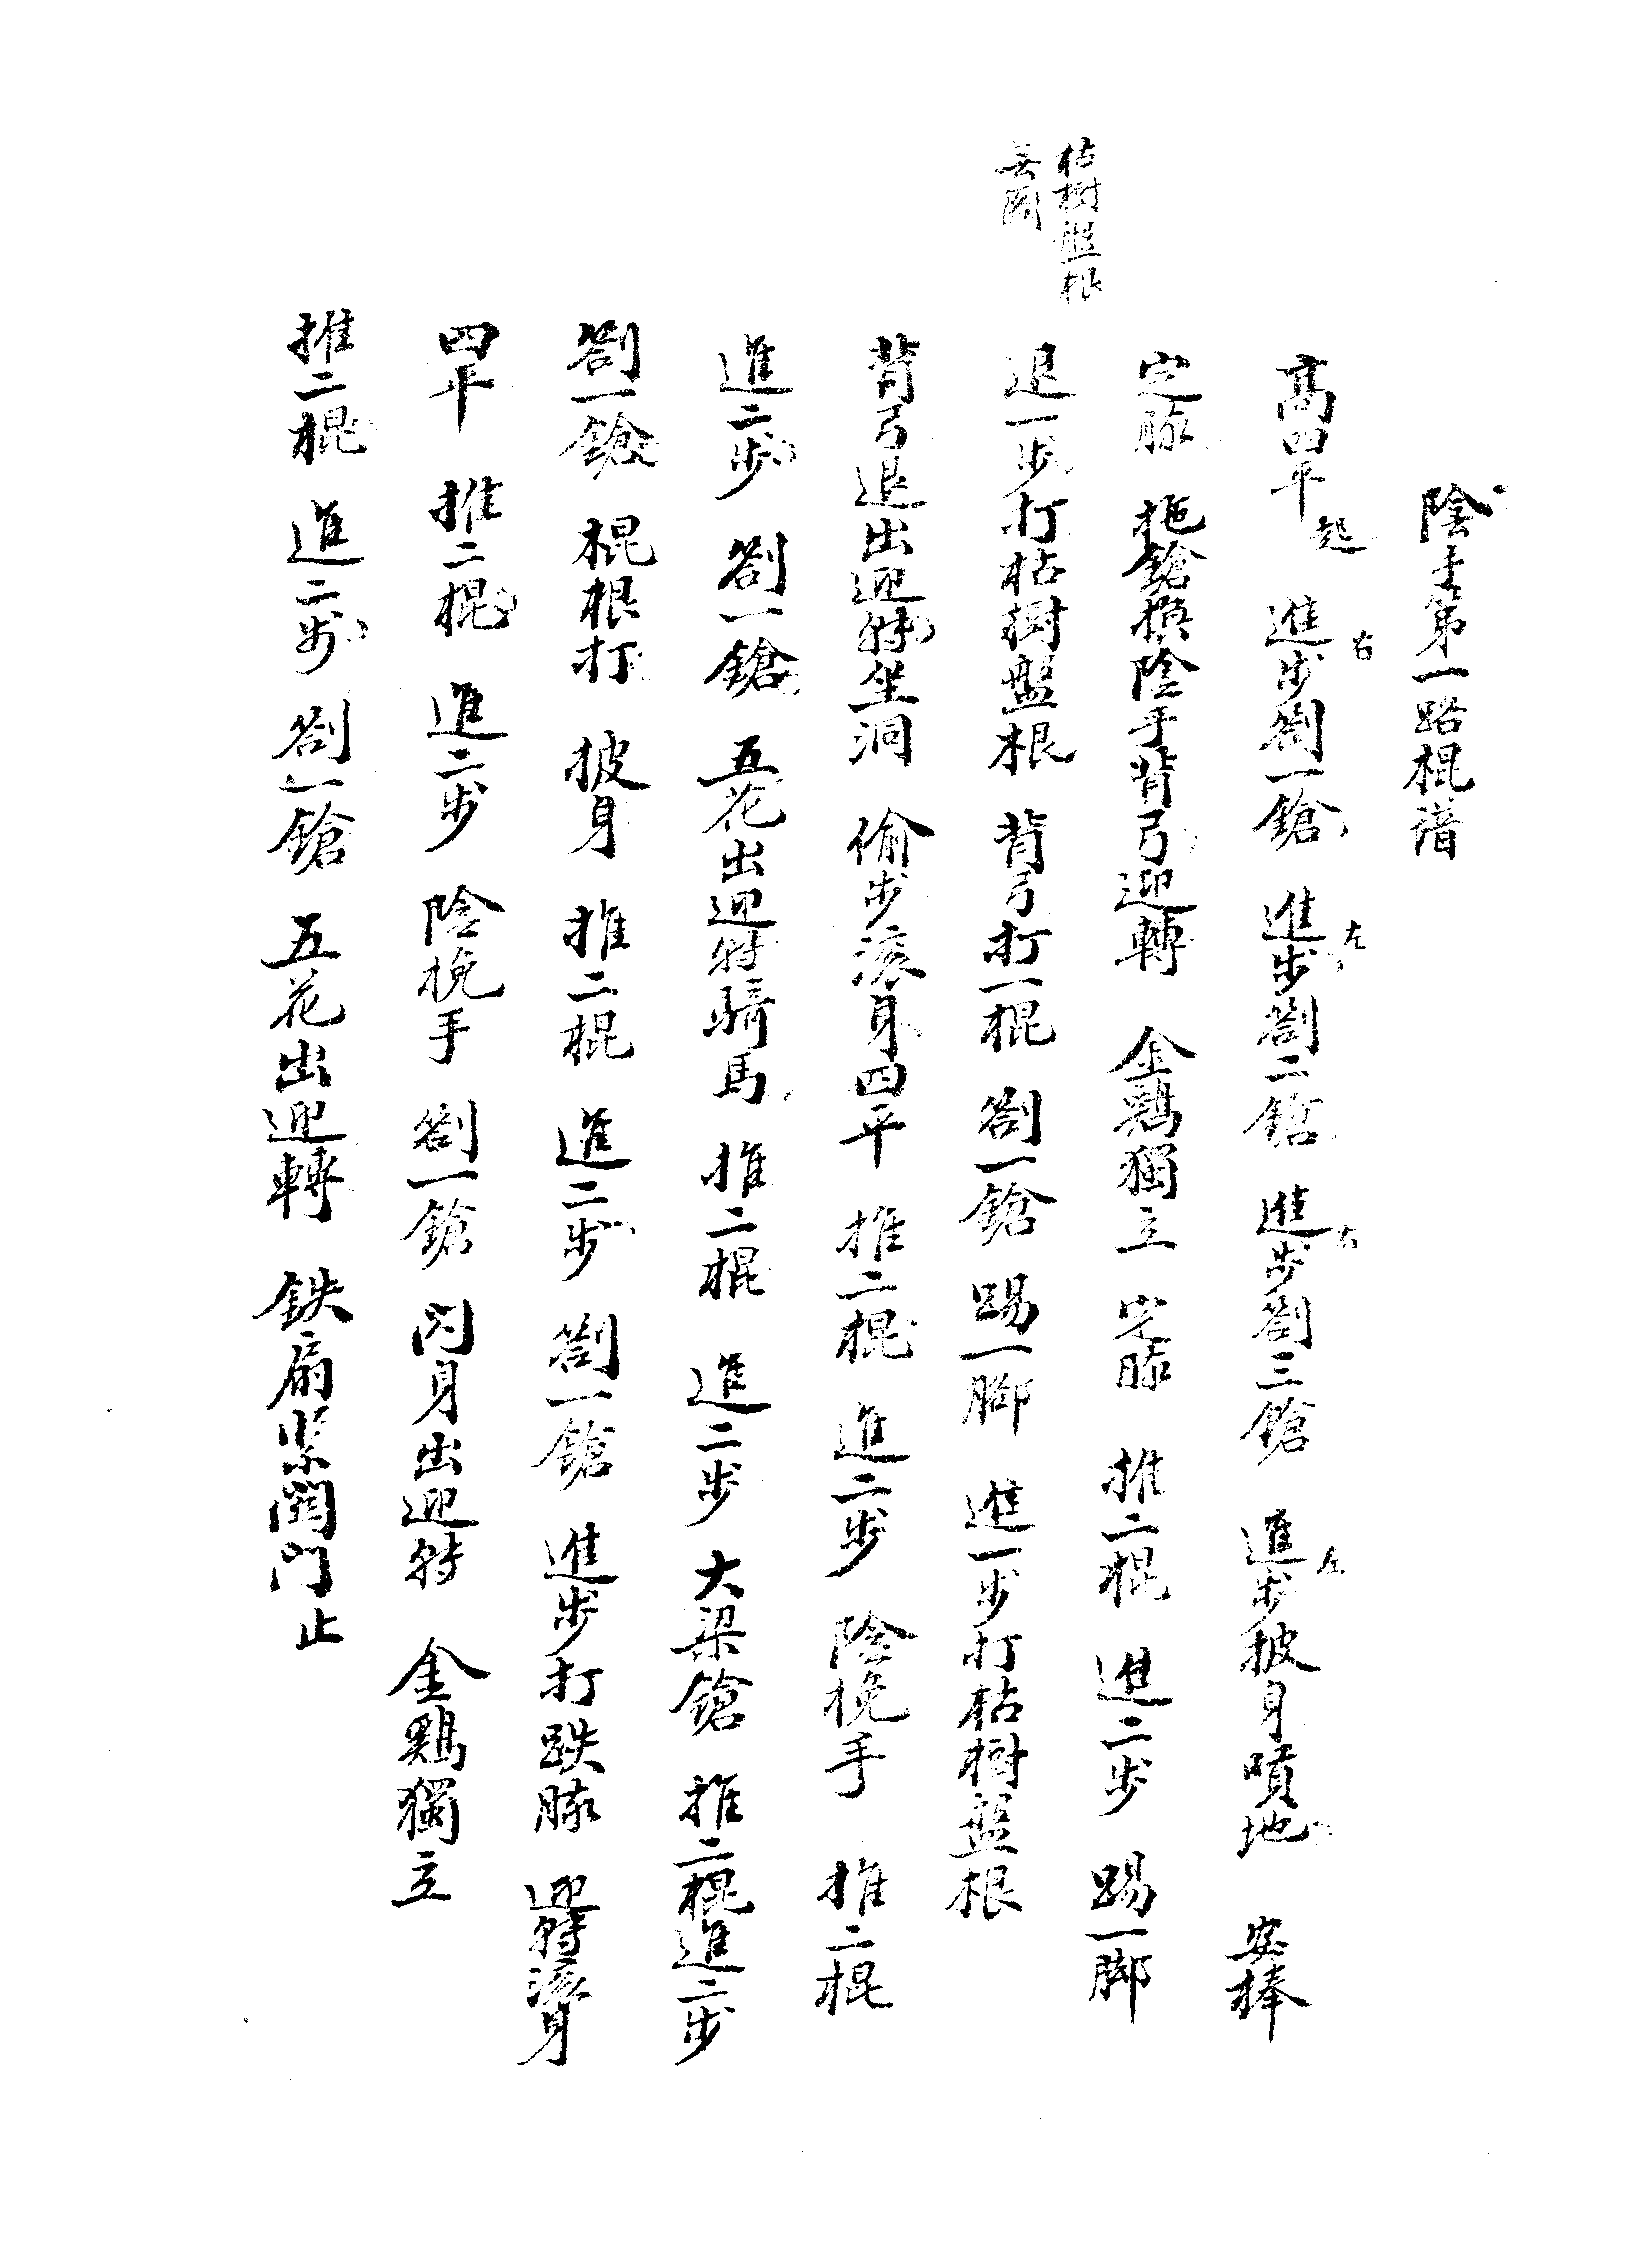 陰手第一路棍譜
高四平起 進步劄一鎗 進步劄二鎗 進步劄三鎗 進步披身噴地 安棒
右 左 右 左
定膝 拖鎗換陰手背弓迎轉 金鷄獨立 定膝 推二棍 進二步 踢一脚
枯樹盤根
退一步打枯樹盤根 背弓打一棍 劄一鎗 踢一脚 進一步打枯樹盤根
背弓退出迎轉坐洞 偷步滚身四平 推二棍 進二步 陰挽手 推二棍
進二步 劄一鎗 五花出迎转騎馬 推二棍 進二步 大梁鎗 推二棍進二步
劄一鎗 棍根打 披身 推二棍 進二步 劄一鎗 進步打跌膝 迎转滚身
四平 推二棍 進二步 陰挽手 劄一鎗 閃身出迎转 金鷄獨立
推二棍 進二步 劄一鎗 五花出迎轉 鉄扇緊関門止